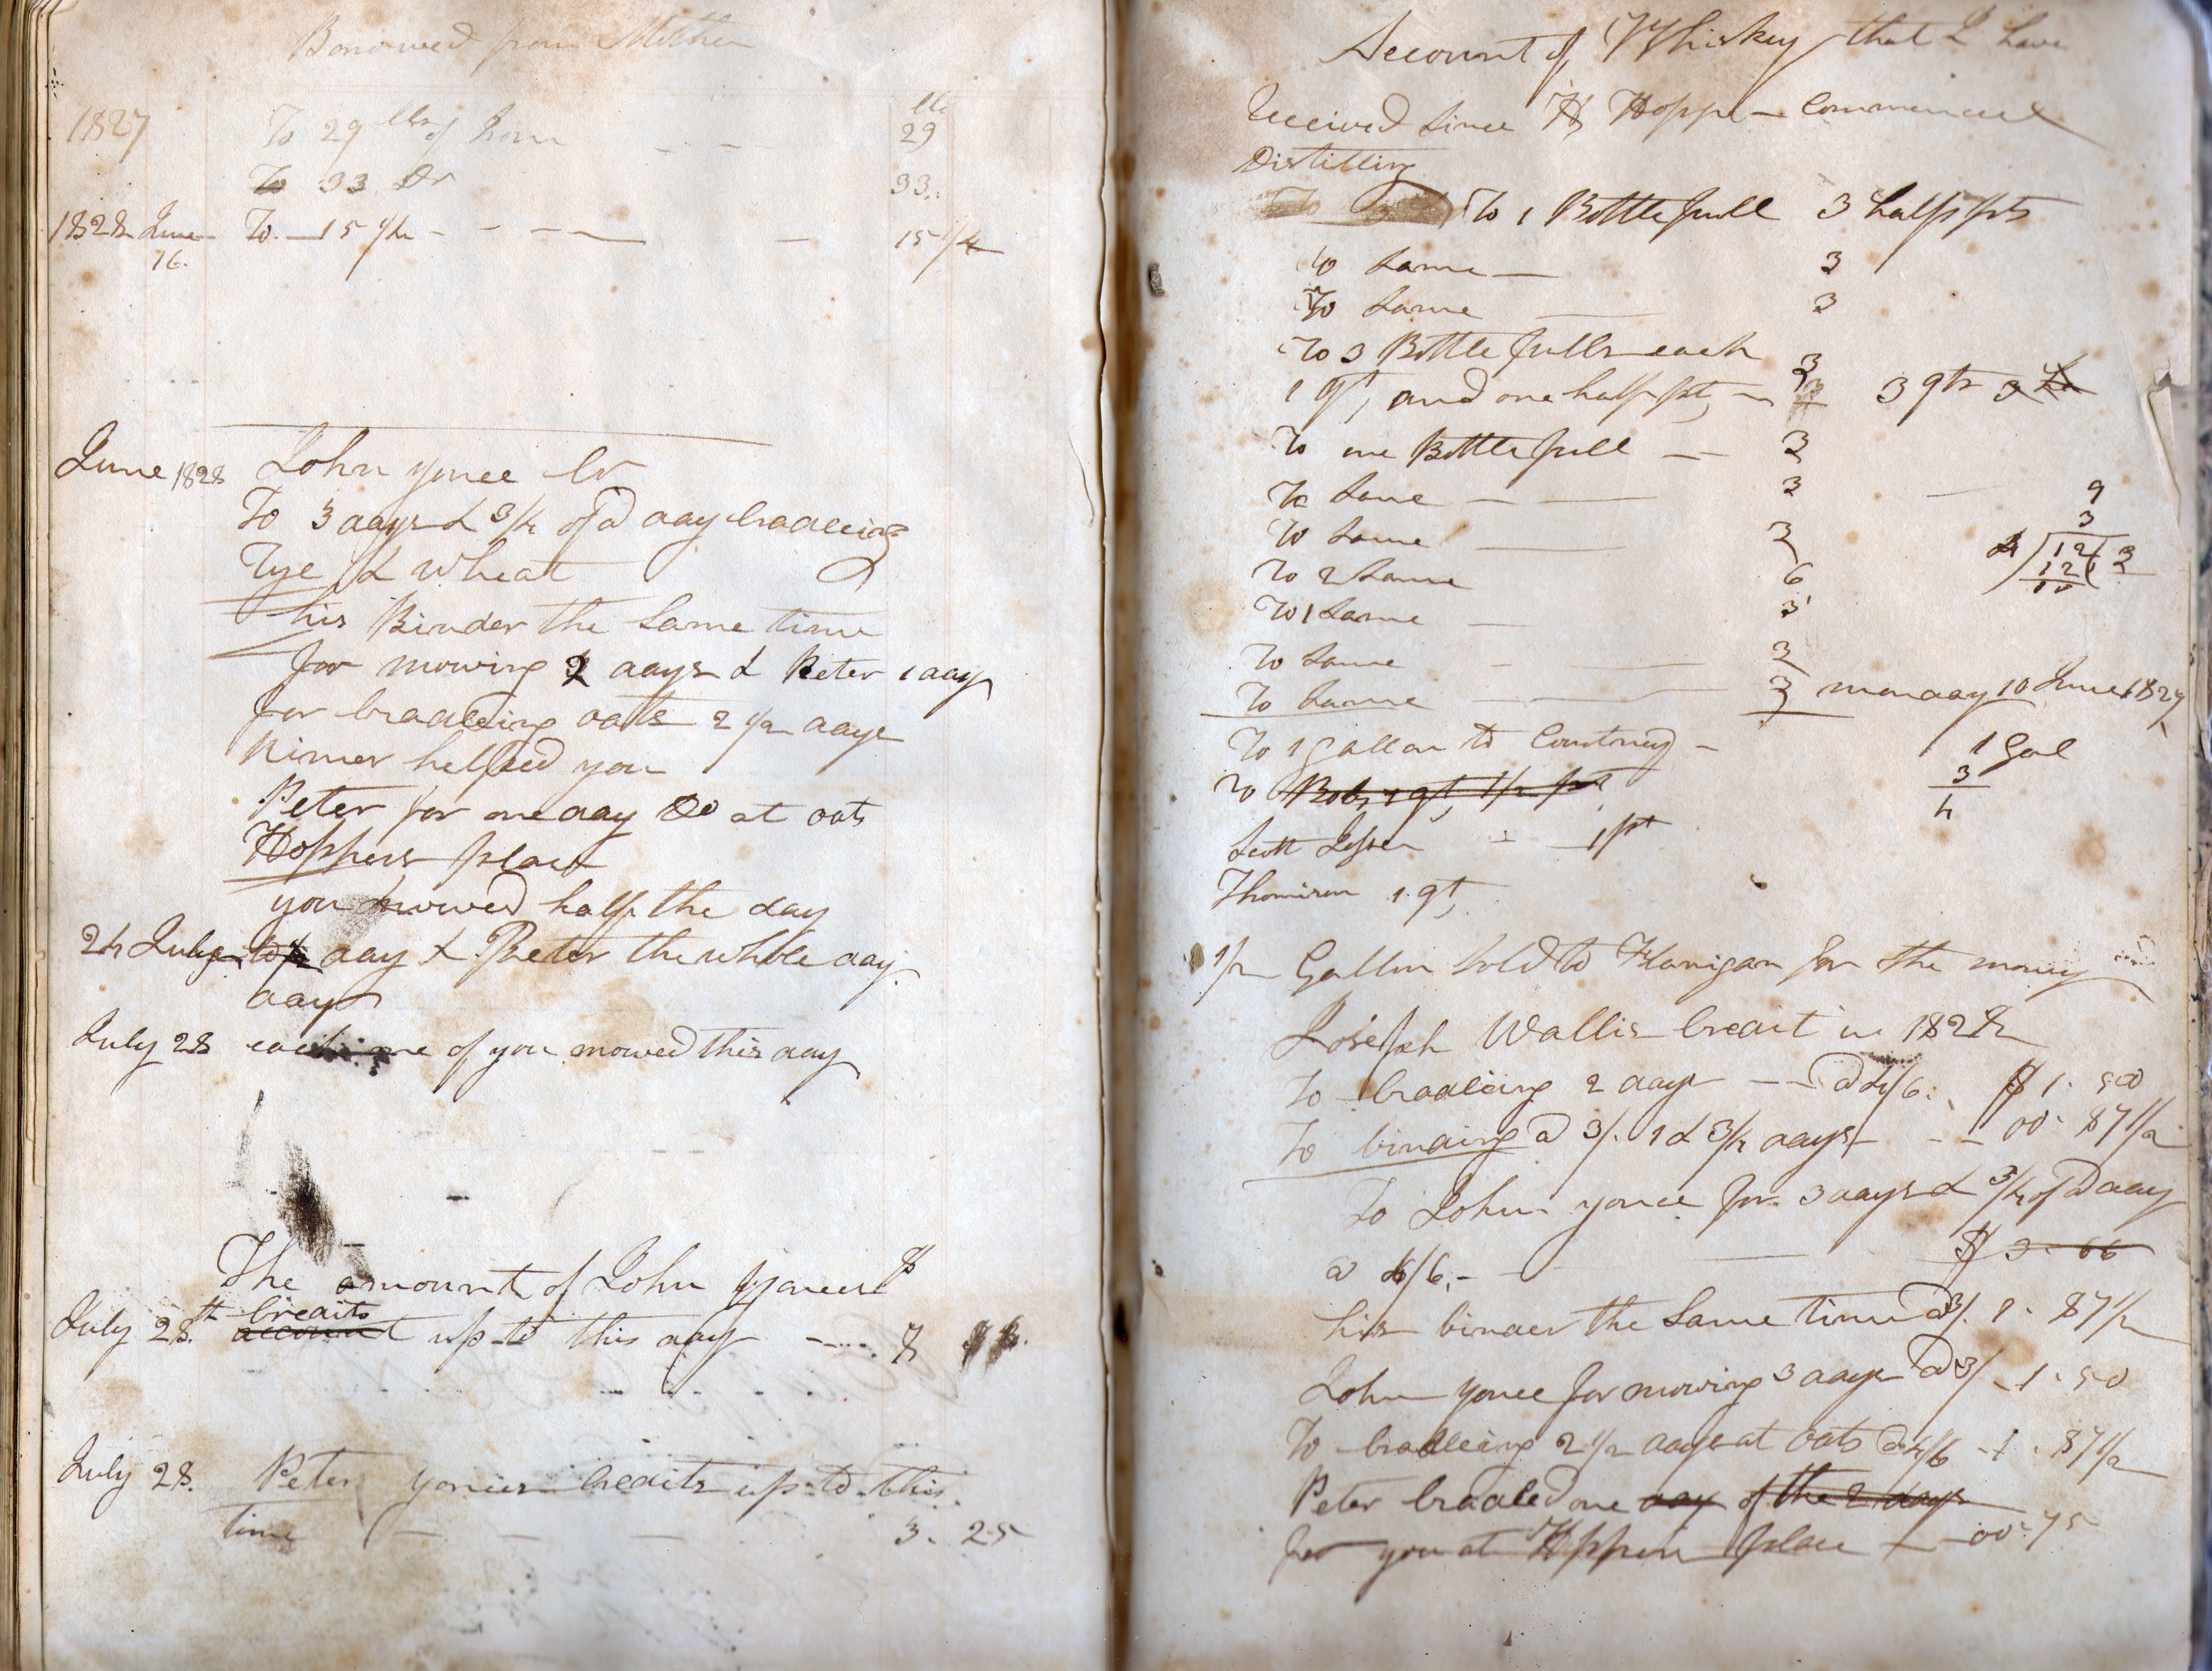 Borrowed from Mother
lb
1827 To 29 lbs of Iron 29
To 33 Do 33
1828 June 16. To 15 1/4 15 1/4
June 1828 John yonce Cr
To 3 days & 3/4 of a day Cradleing
Rye & wheat
his Binder the Same time
for mowing 2 days & Peter 1 day
for Cradleing oats 2 1/2 days
helped you
Peter for one day Do at oats
Hoppers place
you mowed half the day
24 July day & Peter the whole day
days
July 28 each one of you mowed this day
The amount of John yonces $
July 28th credits account up to this day 8
July 28. Peter yonces Credits up to this
time 3. 25
Account of Whiskey that I have
Received Since H Hopper Commenced
Distilling
To 1 Bottle full 3 half pts
To Same 3
To Same 3
To 3 Bottle fulls each
1 qt, and one half pt, 3 3 qts 3
To one Bottle full 3
To Same 3
To Same 3
To 2 Same 6
To 1 Same 3
To Same 3
To Same 3 monday 10 June 1827
9
3
4/12(3
12
To 1 gallon to Courtney 1 Gal
3
4
To Bob, 1 qt, 1/2 pt
Scott 1 pt
Thomison 1 qt,
1/2 Gallon Sold to Flanigan for the money
Joseph Wallis Credit in 1828
To Cradleing 2 days @ 4/6 $ 1. 50
To binding @ 3/. 1 & 3/4 days 00. 87 1/2
To John yonce for 3 days & 3/4 of a day
@ 4/6. $ 3. 66
his binder the Same time @ 3/. 1. 87 1/2
John yonce for mowing 3 days @ 3/ 1. 50
To Cradleing 2 1/2 days at oats @ 4/6 1. 87 1/2
Peter Cradled one day of the 2 days
for you at Hoppers place 00. 75